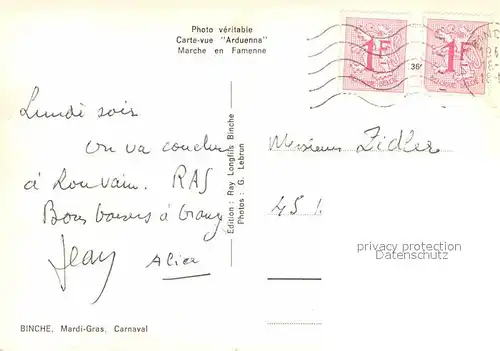 Photo véritable
Carte-vue "Arduenna"
Marche en Famenne
1F
1F
BELGIQUE-BELGIE
36
Lundi soir
on va coucher
à Louvain. RAS
Bons baisers à
Jean
Alice
Edition : Ray Longfils Binche
Photos : G. Lebrun
Zidler
45
privacy protection
Datenschutz
BINCHE, Mardi-Gras, Carnaval